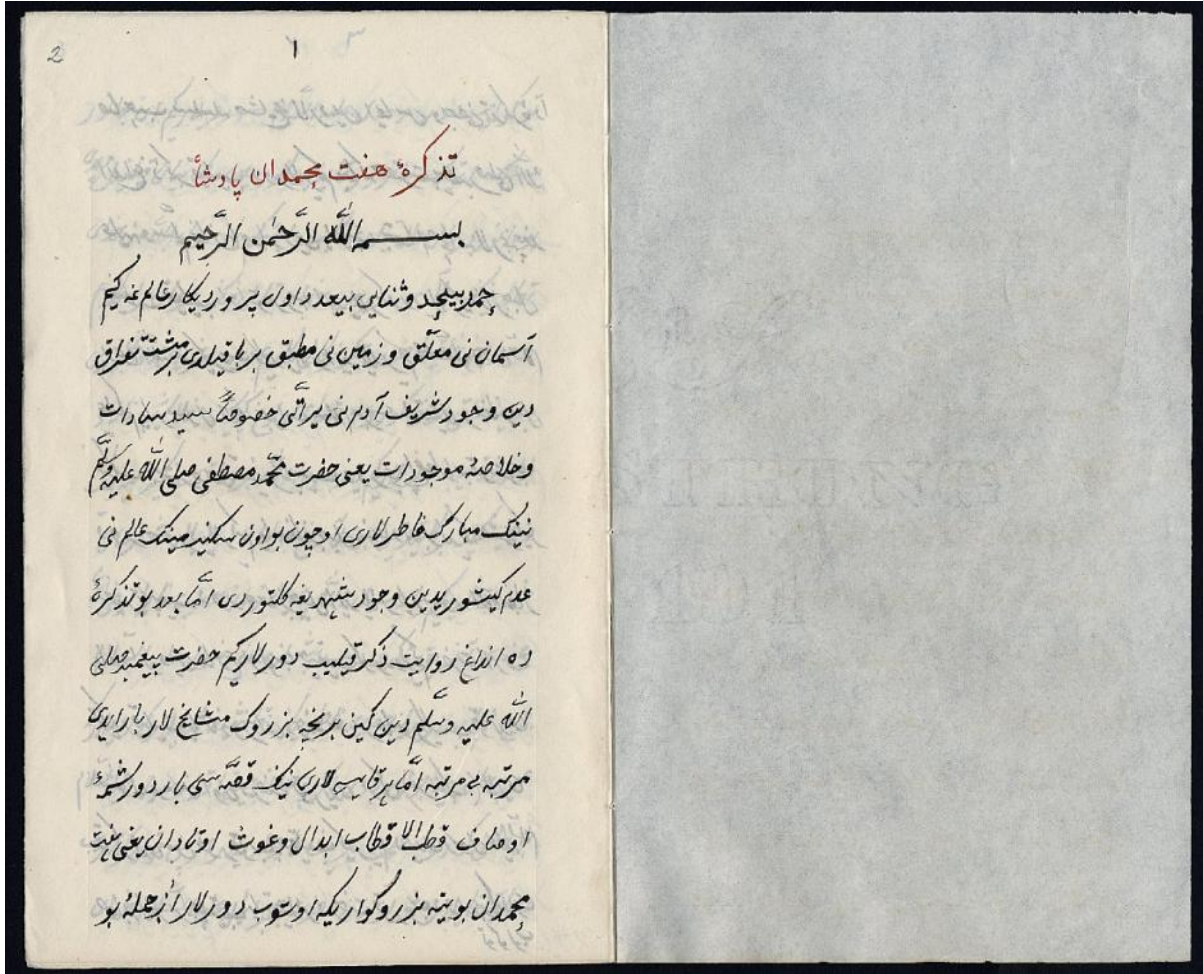 2
١
تذكرهٔ هفت محمدان پادشاٰ
بسم الله الرَّحمٰن الرَّحيم
حمد بيحد و ثنايى بيعدد اول پروردیكار عالم غه كيم
آسمان نى معلّق و زمين نى مطبق برپا قيلدى بر مشت تفراق
دين وجود شريف آدم نى يراتّى خصوصاً سيد سادات
و خلاصهٔ موجودات يعنى حضرت محمّد مصطفى صلى الله عليه وسلّم
نينك مبارك خاطرلارى اوچون بو اون سكيز مينك عالم نى
عدم كيشوريدين وجود شهريغه كلتوردى امّا بعد بو تذكرهٔ
ده انداغ روايت ذكر قيليب دورلاركيم حضرت پيغمبر صلى
الله عليه وسلّم دين كين برنچه بزروك مشايخ لار بار ايدى
مرتبه بى مرتبه امّا هر قايسى لارى نينك قصّه سى بار دور شمهٔ
اوصاف قطب الاقطاب ابدال و غوث اوتادان يعنى هفت
محمدان بو يته بزروكوار يكه اوتوب دورلار ازجملهٔ بو